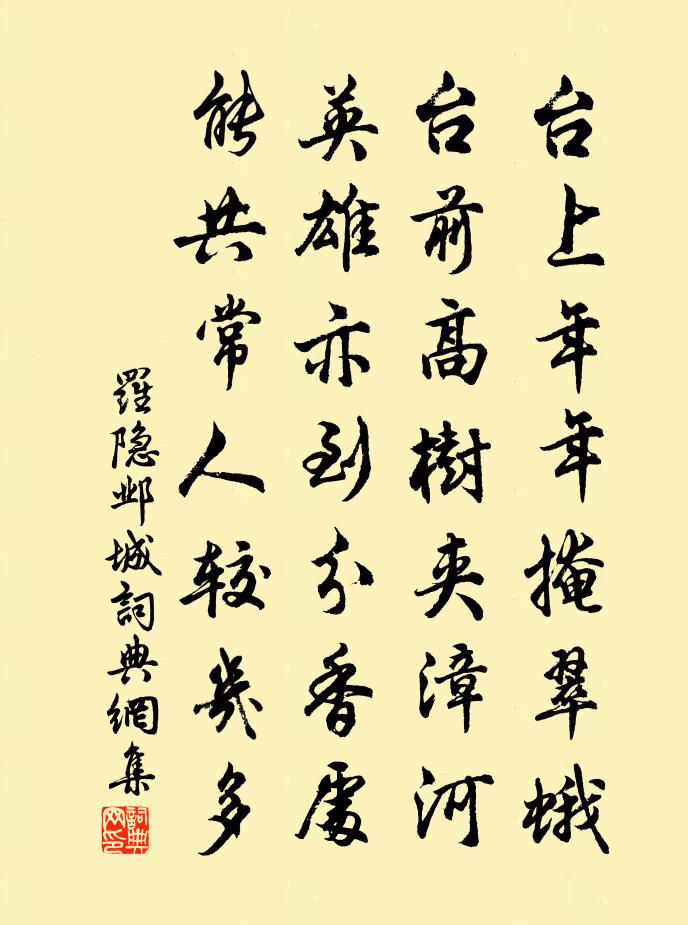 台上年年掩翠蛾
台前高樹夾漳河
英雄亦到分香處
能共常人较幾多
羅隐邺城詞典網集
詞典网印